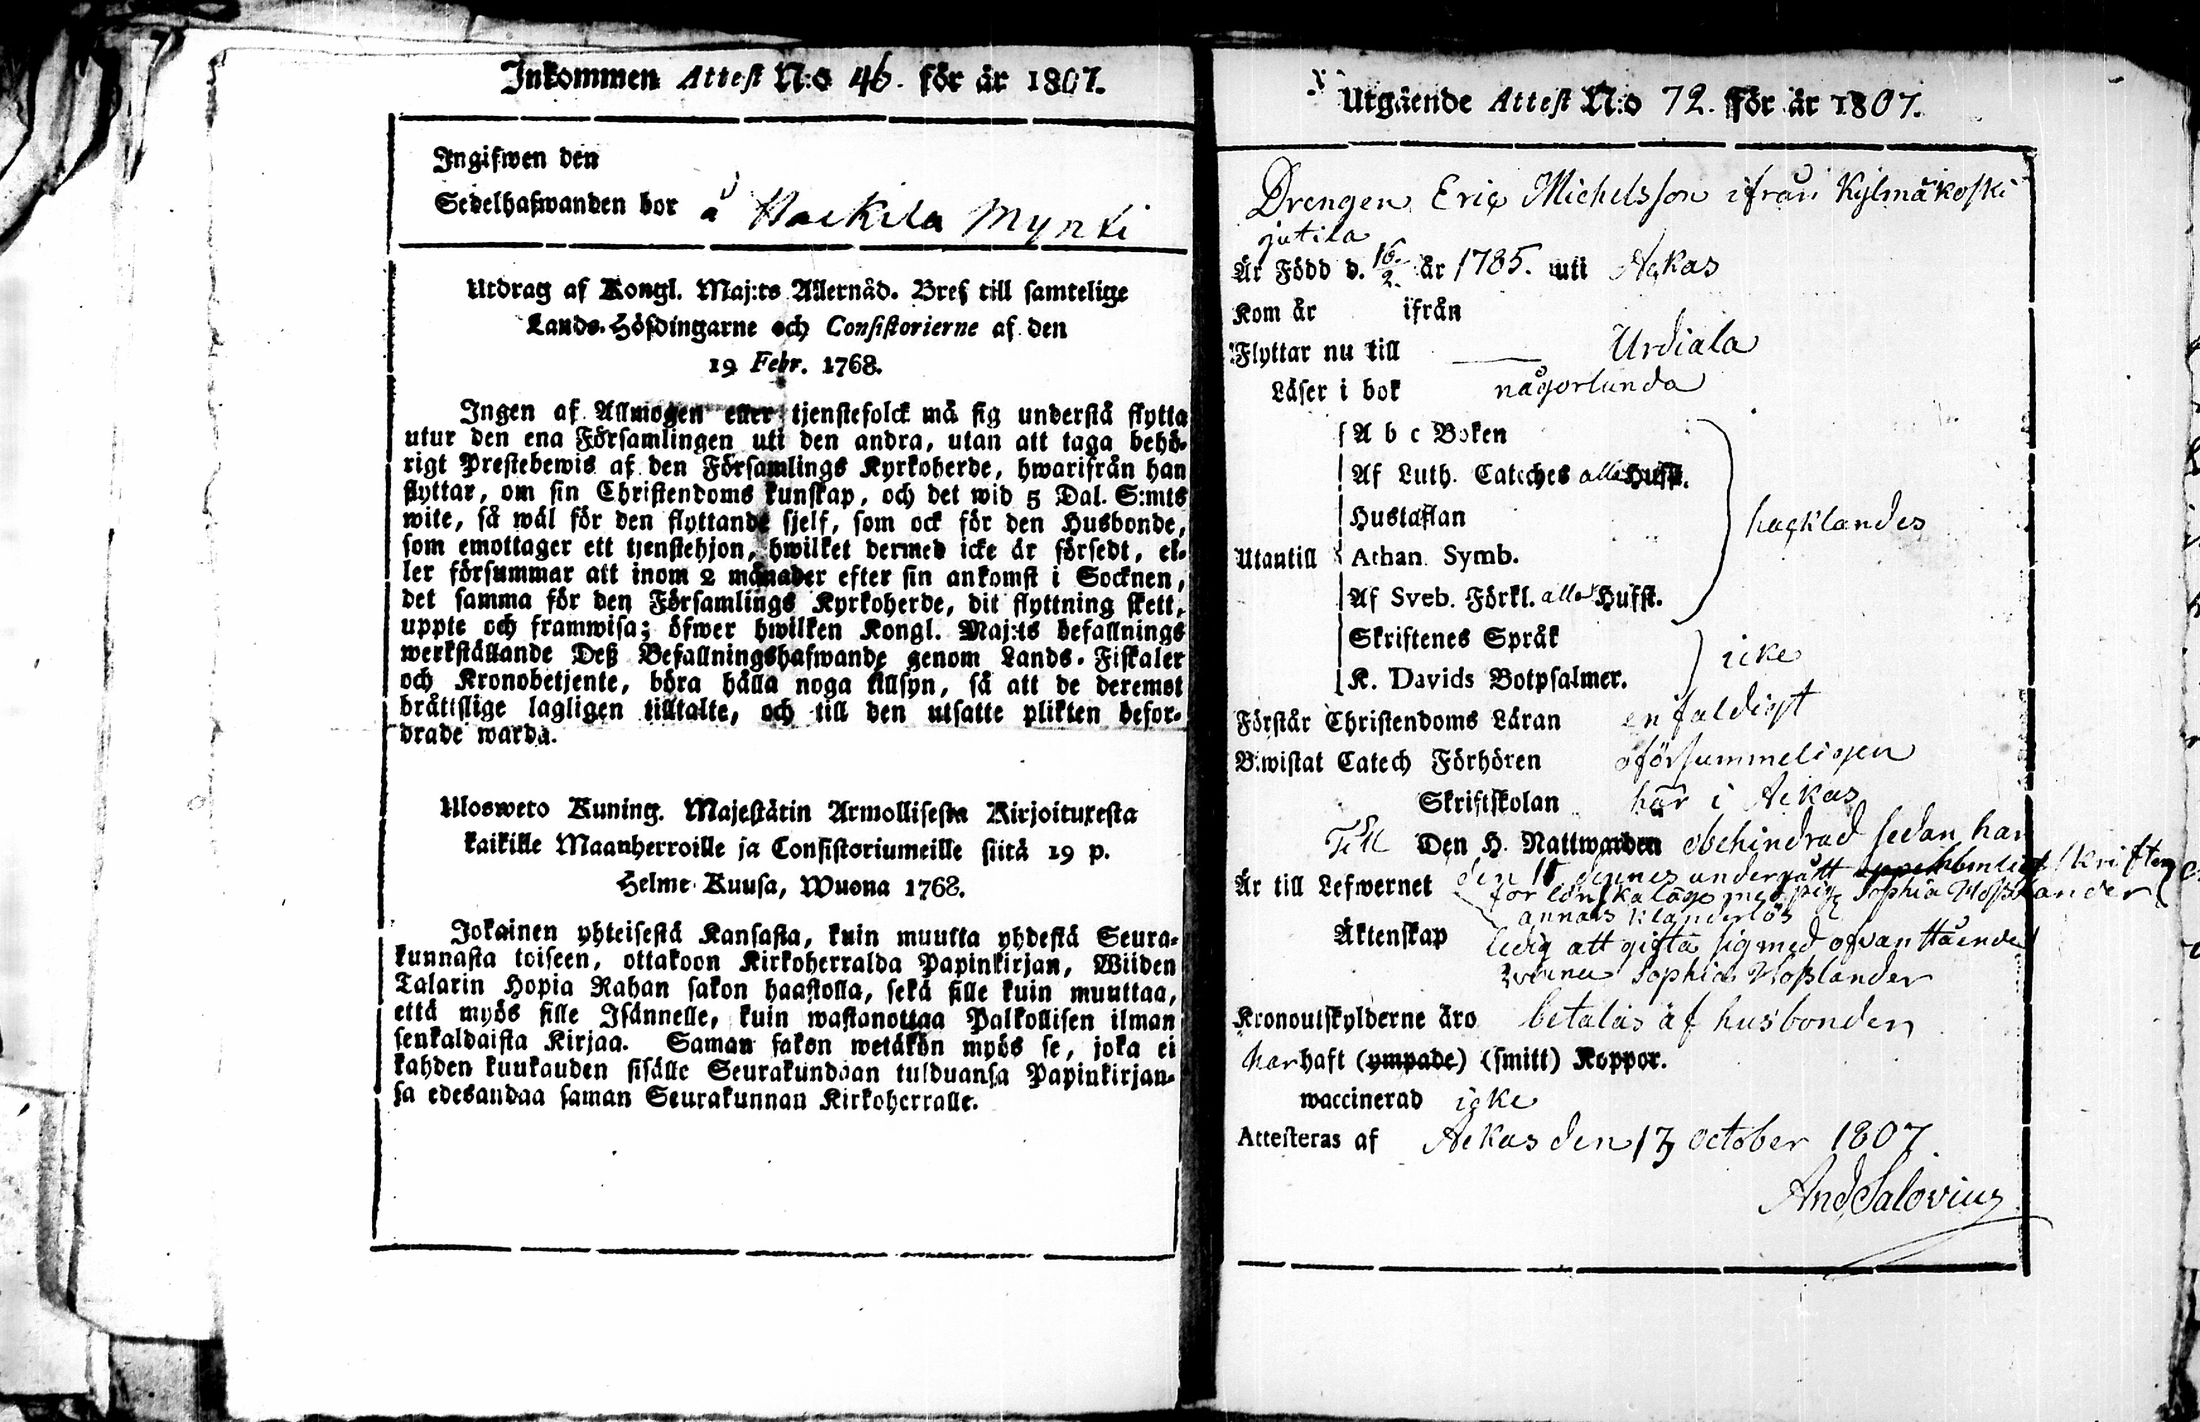 Inkommen Attest N:o 46. för år 1807.
Ingifwen den
Sedelhafwanden bor å Haekila Mynti
Utdrag af Kongl. Maj:ts Allernåd. Bref till samtelige
Lands-Höfdingarne och Consistorierne af den
19 Febr. 1768.
Ingen af Allmogen eller tjenstefolck må sig understå flytta
utur den ena Församlingen uti den andra, utan att taga behö-
rigt Prestebewis af den Församlings Kyrkoherde, hwarifrån han
flyttar, om sin Christendoms kunskap, och det wid 5 Dal. S:mts
wite, så wäl för den flyttande sjelf, som ock för den Husbonde,
som emottager ett tjenstehjon, hwilket dermed icke är försedt, el-
ler försummar att inom 2 månader efter sin ankomst i Socknen,
det samma för den Församlings Kyrkoherde, dit flyttning skett,
uppte och framwisa; öfwer hwilken Kongl. Maj:ts befallnings
werkställande Deß Befallningshafwande genom Lands-Fiskaler
och Kronobetjente, böra hålla noga tillsyn, så att de deremot
bråttslige lagligen tilltalte, och till den utsatte plikten befor-
drade warda.
Ulosweto Kuning. Majestätin Armollisesta Kirjoituxesta
kaikille Maanherroille ja Consistoriumeille siitä 19 p.
Helme-Kuusa, Wuona 1768.
Jokainen yhteisestä Kansasta, kuin muutta yhdestä Seura-
kunnasta toiseen, ottakoon Kirkoherralda Papinkirjan, Wiiden
Talarin Hopia Rahan sakon haastolla, sekä sille kuin muuttaa,
että myös sille Isännelle, kuin wastanottaa Palkollisen ilman
senkaldaista Kirjaa. Saman sakon wetäkön myös se, joka ei
kahden kuukauden sisälle Seurakundaan tulduansa Papinkirjan-
sa edesandaa saman Seurakunnan Kirkoherralle.
Utgående Attest N:o 72. för år 1807.
Drengen Eric Michelsson ifrån Kylmäkoski
jutila
Är Född d. 16/2. år 1785. uti Ackas
Kom år ifrån
Flyttar nu till Urdiala
Läser i bok någorlunda
A b c Boken
Af Luth. Cateches alla Hufst.
Hustaflan
hacklandes
Utantill Athan. Symb.
Af Sveb. Förkl. alla Hufst.
Skriftenes Språk
icke
K. Davids Botpsalmer.
Förstår Christendoms Läran enfaldigt
B:wistat Catech Förhören oförsummeligen
Skriftskolan här i Ackas
Till Den H. Nattwarden obehindrad sedan han
Är till Lefwernet den 11 dennes undergått skriften
för lönskaläge med pig. Sophia Mosslander
annars klanderlös
Äktenskap ledig att gifta sig med ofvanstående
qvinna Sophia Mosslander
Kronoutskylderne äro betalas af husbonden
har haft (ympade) (smitt) Koppor.
waccinerad icke
Attesteras af Ackas den 13 october 1807
And. Salovius